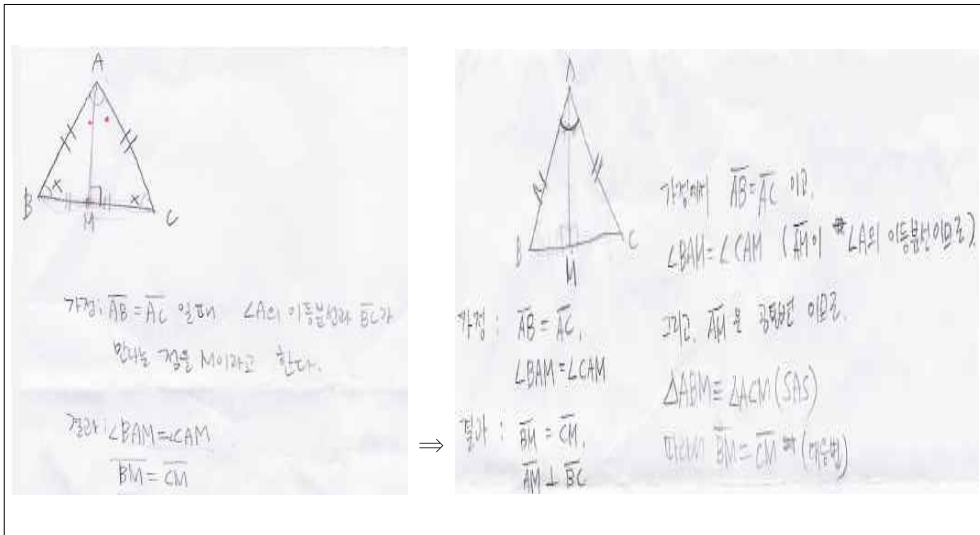 A
B
M
C
x
x
가정: AB = AC 일 때 ∠A의 이등분선과 BC가
만나는 점을 M이라고 한다.
결과: ∠BAM = ∠CAM
BM = CM
⇒
A
B
M
C
가정 : AB = AC,
∠BAM = ∠CAM
결과 : BM = CM,
AM ⊥ BC
가정에서 AB = AC 이고,
∠BAM = ∠CAM (AM이 ∠A의 이등분선이므로)
그리고, AM 은 공통변 이므로,
△ABM ≡ △ACM (SAS)
따라서 BM = CM (대응변)